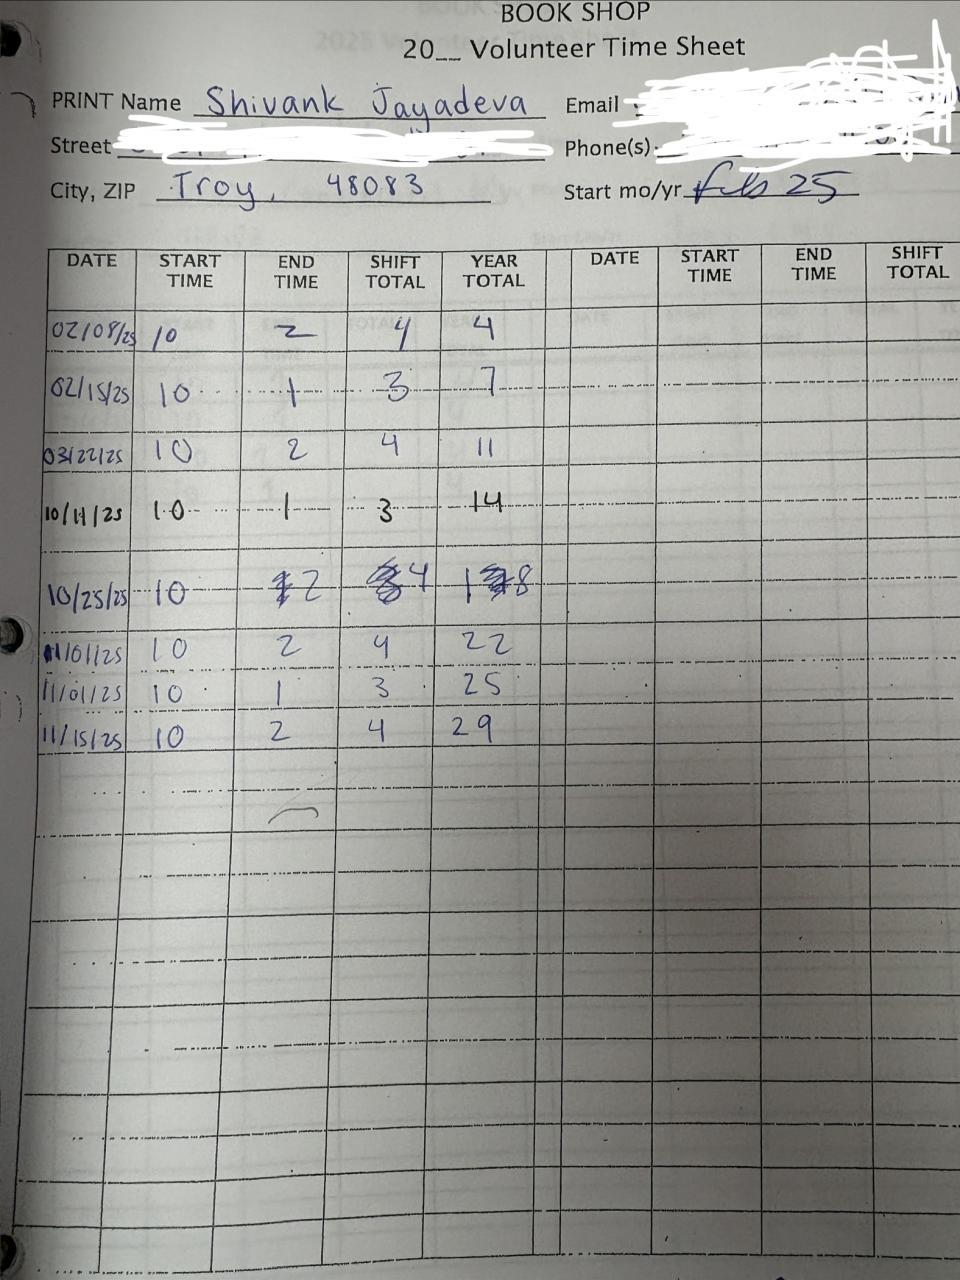 BOOK SHOP
20__ Volunteer Time Sheet
PRINT Name Shivank Jayadeva Email
Street Phone(s)
City, ZIP Troy, 48083 Start mo/yr. feb 25
DATE START TIME END TIME SHIFT TOTAL YEAR TOTAL DATE START TIME END TIME SHIFT TOTAL
02/08/25 10 2 4 4
02/15/25 10 1 3 7
03/22/25 10 2 4 11
10/11/25 10 1 3 14
10/25/25 10 2 4 18
11/01/25 10 2 4 22
11/01/25 10 1 3 25
11/15/25 10 2 4 29